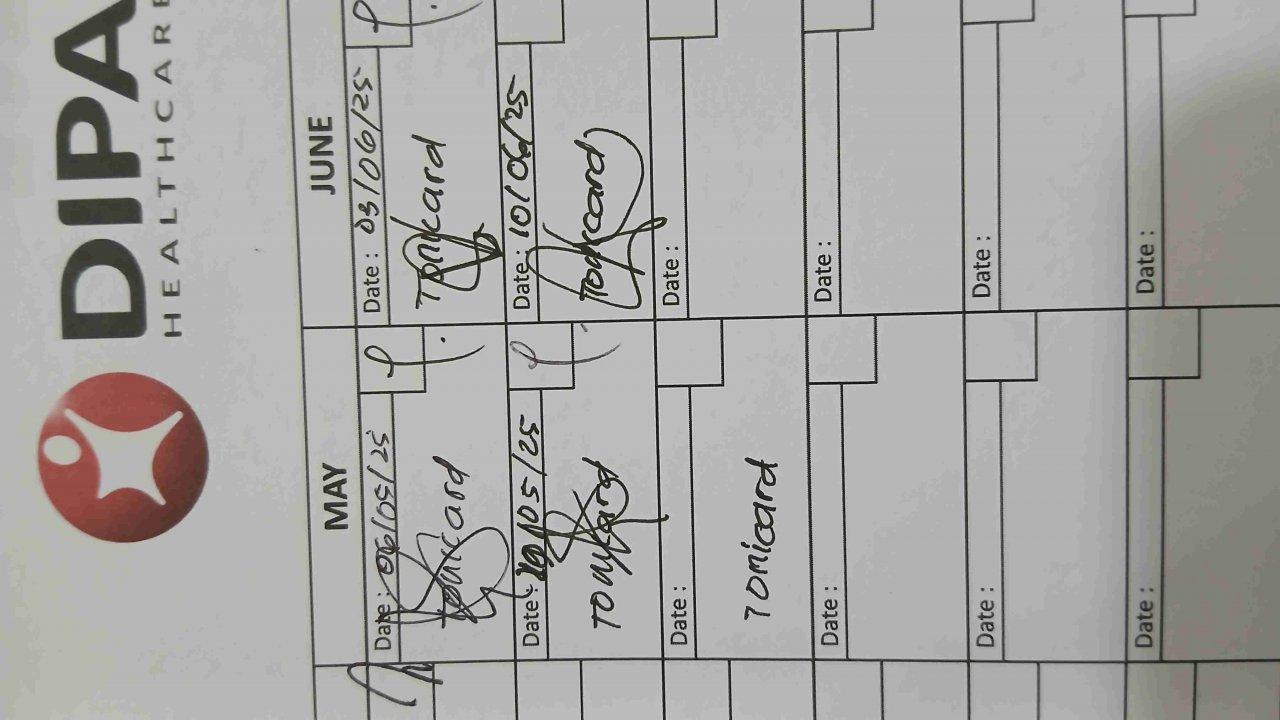 DIPA
HEALTHCARE
MAY
JUNE
Date : 06/05/25
Tomicard
Date : 03/06/25
Tomicard
Date : 05/25
Tomicard
Date : 10/06/25
Tomicard
Date :
Tomicard
Date :
Date :
Date :
Date :
Date :
Date :
Date :